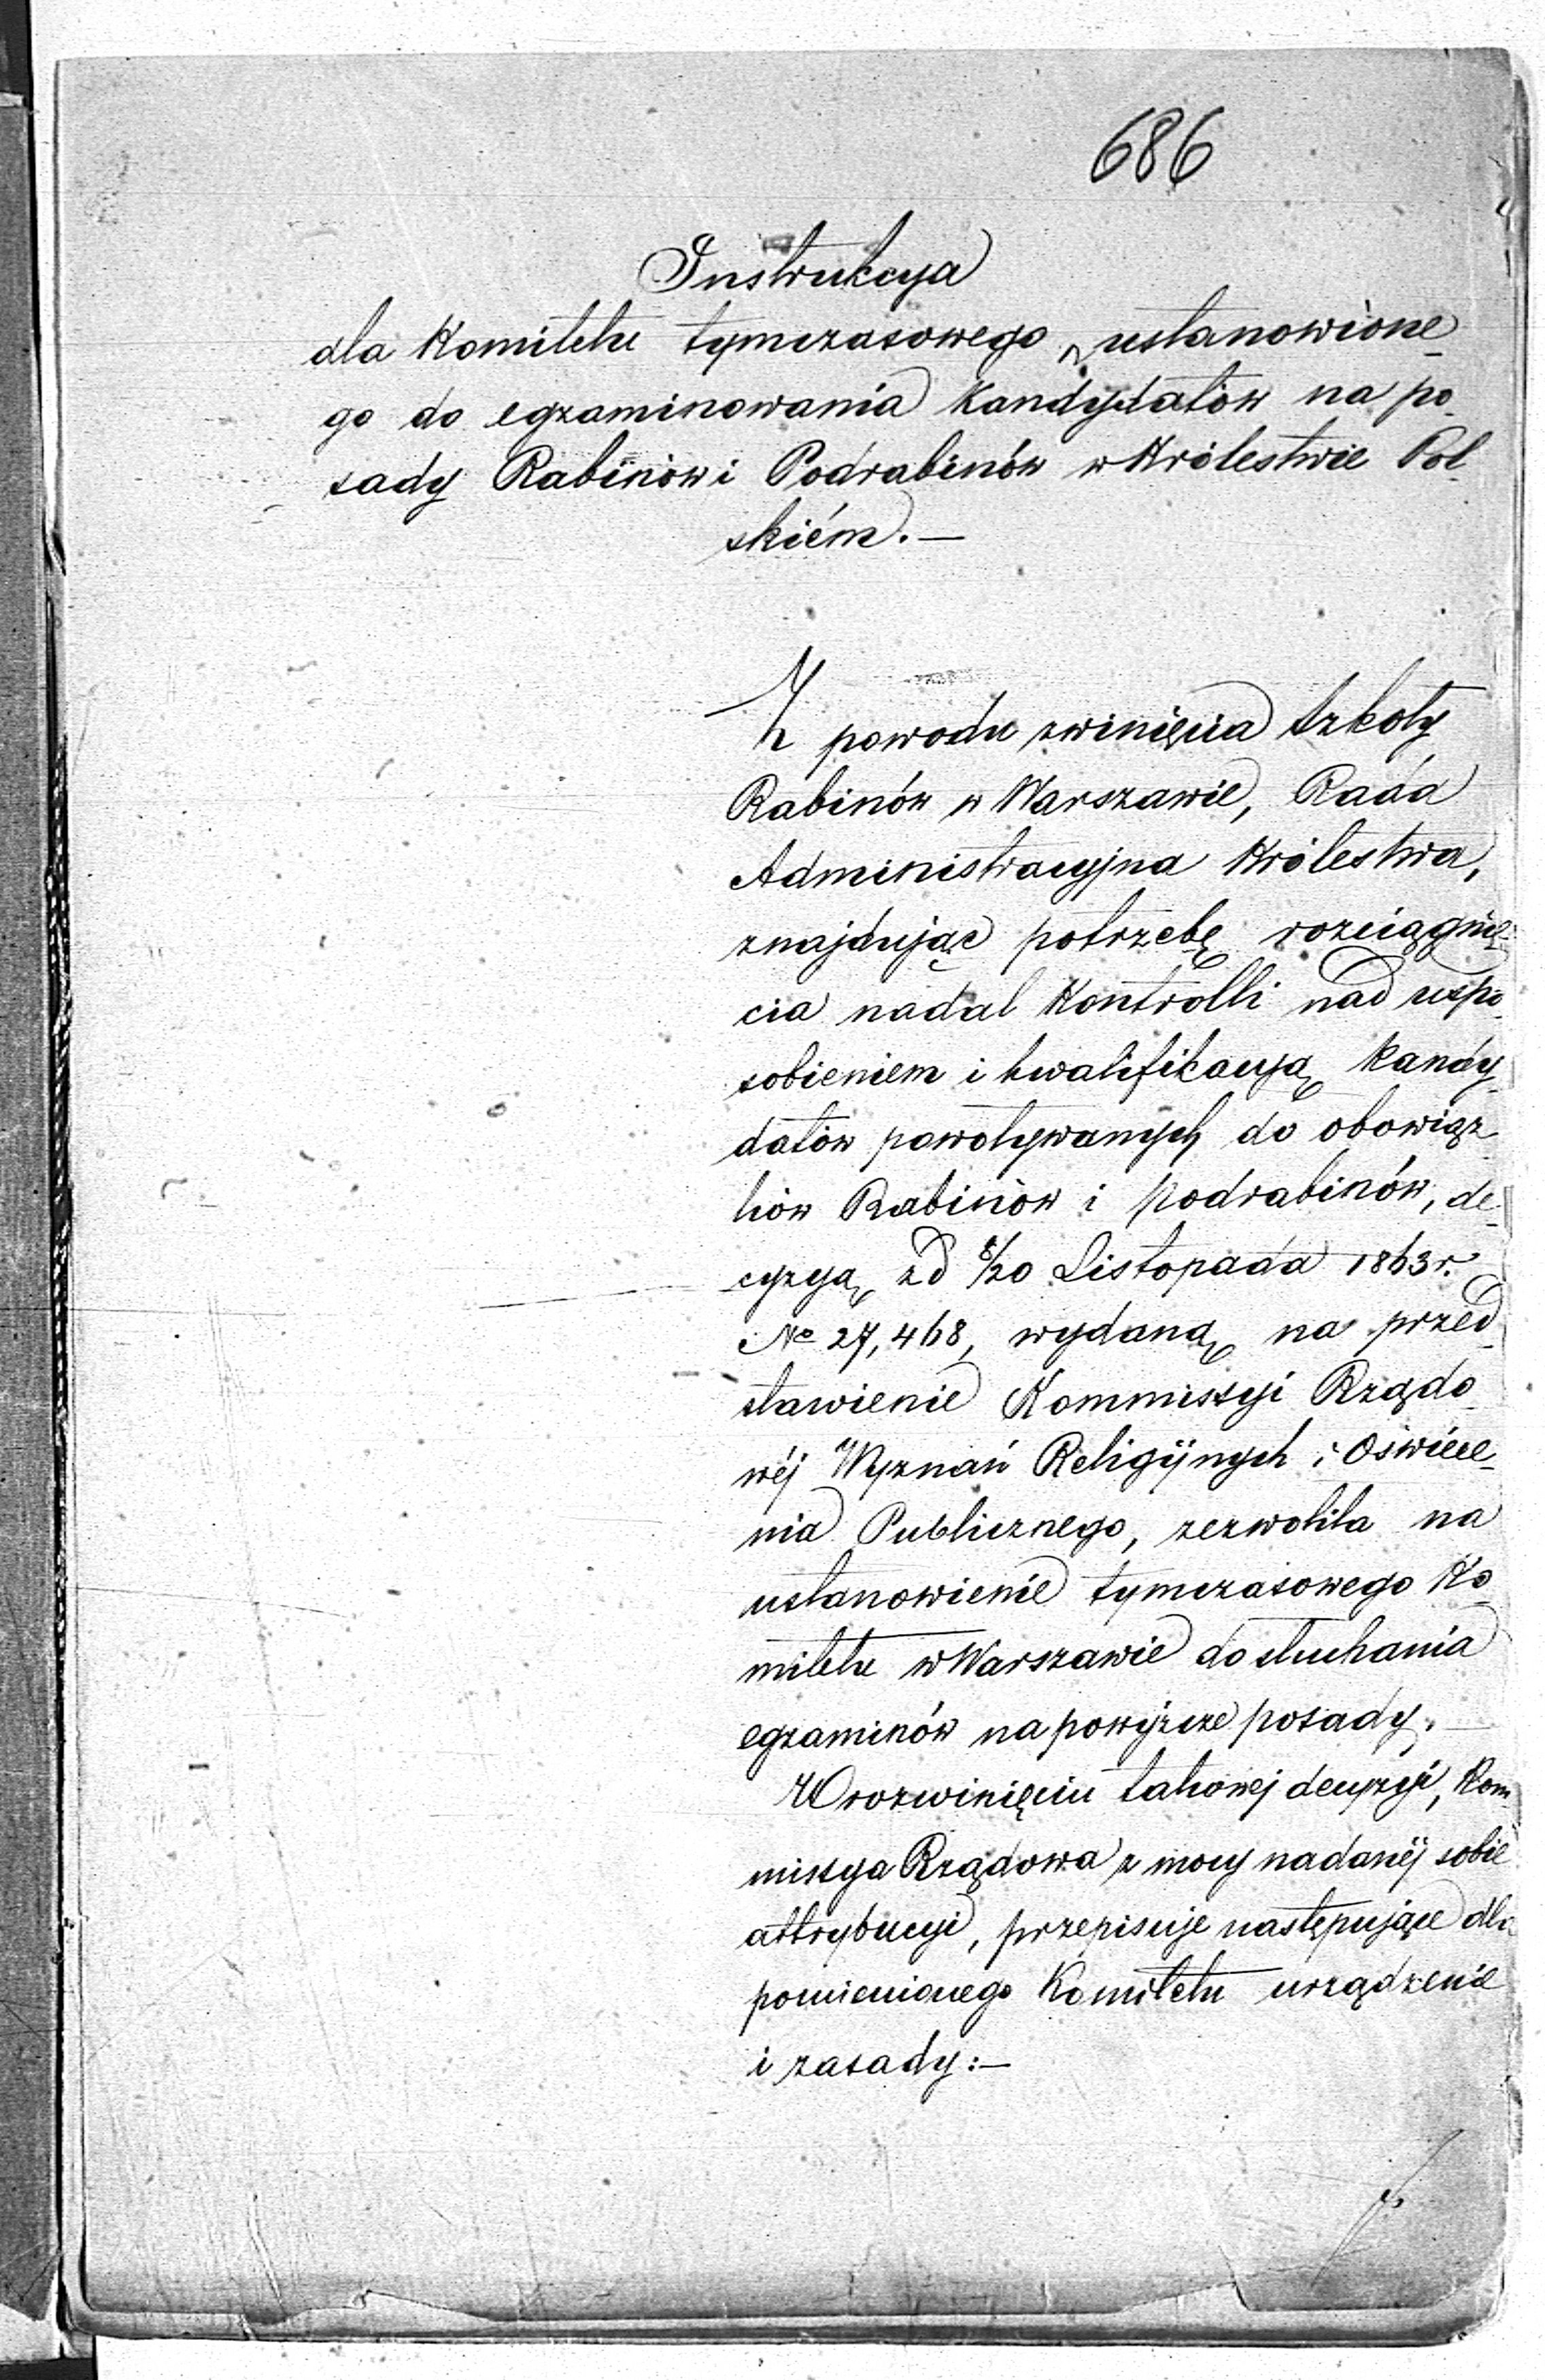 686
Instrukcya
dla Komitetu tymczasowego, ustanowione-
go do egzaminowania Kandydatów na po-
sady Rabinów i Podrabinów w Królestwie Pol-
skiém.—
Z powodu zwinięcia szkoły
Rabinów w Warszawie, Rada
Administracyjna Królestwa,
znajdując potrzebę rozciągnię-
cia nadal Kontrolli nad uspo-
sobieniem i kwalifikacyą kandy-
datów powoływanych do obowiąz-
ków Rabinów i Podrabinów, de-
cyzyą z d 8/20 Listopada 1863 r.
№ 27,468, wydaną na przed-
stawienie Kommissyi Rządo-
wéj Wyznań Religijnych i Oświece-
nia Publicznego, zezwoliła na
ustanowienie tymczasowego Ko-
mitetu w Warszawie do słuchania
egzaminów na powyższe posady.—
W rozwinięciu takowej decyzyi, Kom-
missya Rządowa z mocy nadanéj sobie
attrybucyi, przepisuje następujące dla
pomienionego Komitetu urządzenie
i zasady:—